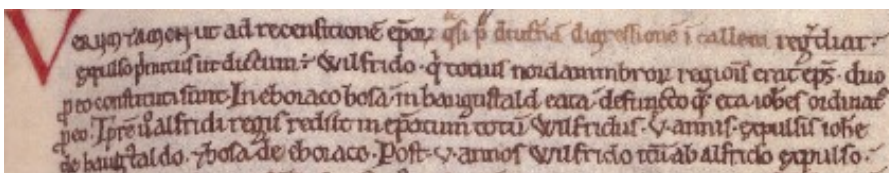 Verumtamen ut ad recensitionē ep̄oꝝ q̄si p̄ diutinā digressionē ī callem regrediar.
expulso penitus ut dictum ÷ Wilfrido. q̄ totius nordanimbroꝝ regiōis erat ep̄s. duo
p eo constituti sunt. In eboraco bosa. in haugustald eata. defuncto q̄ȝ eta. ioh̄es ordinat᷒
p eo. Tp̄re ū alfridi regis rediit in ep̄atum totū Wilfridus. v. annis. expulsis ioh̄e
de haugustaldo. ⁊ bosa de eboraco. Post. v. annos Wilfrido itū ab alfrido expulso.